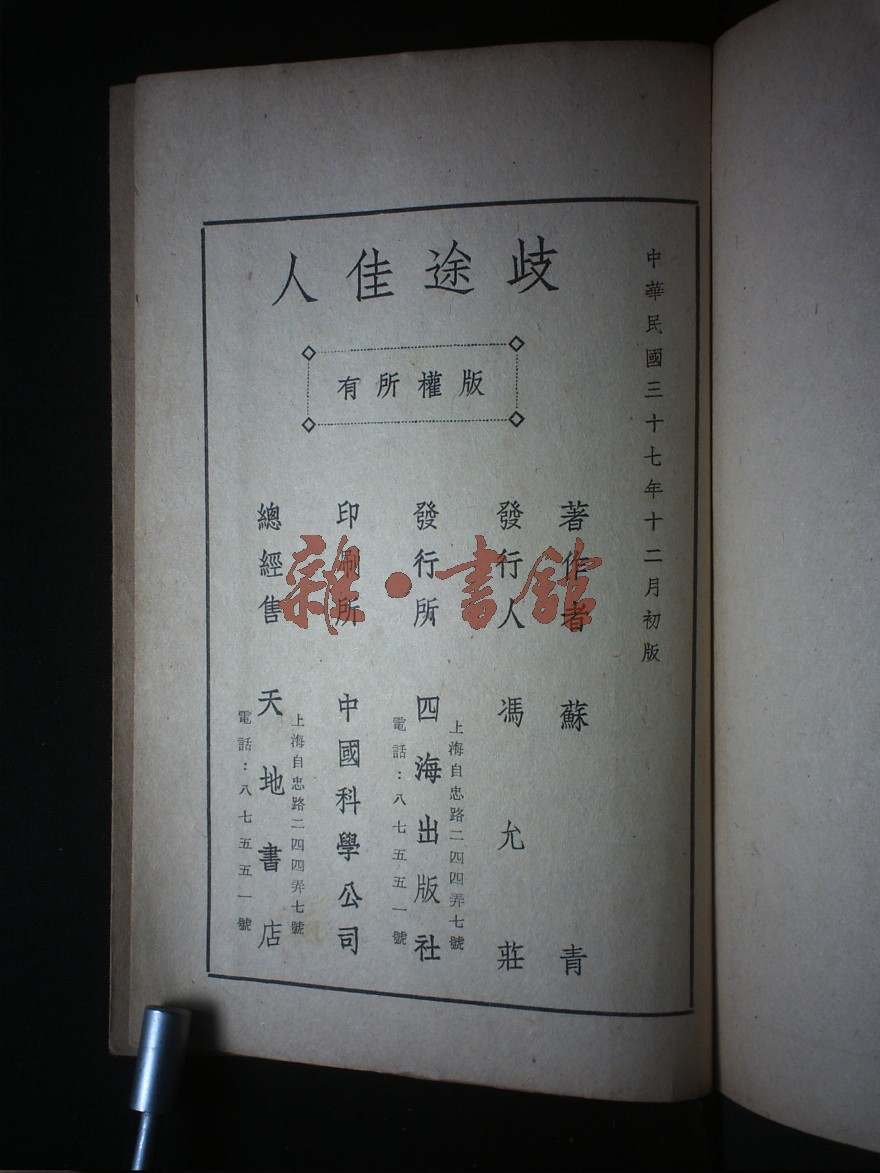 中華民國三十七年十二月初版
歧途佳人
版權所有
著作者 蘇青
發行人 馮允莊
發行所 四海出版社
上海自忠路二四四弄七號
電話：八七五五一號
印刷所 中國科學公司
總經售 天地書店
上海自忠路二四四弄七號
電話：八七五五一號
雜·書館